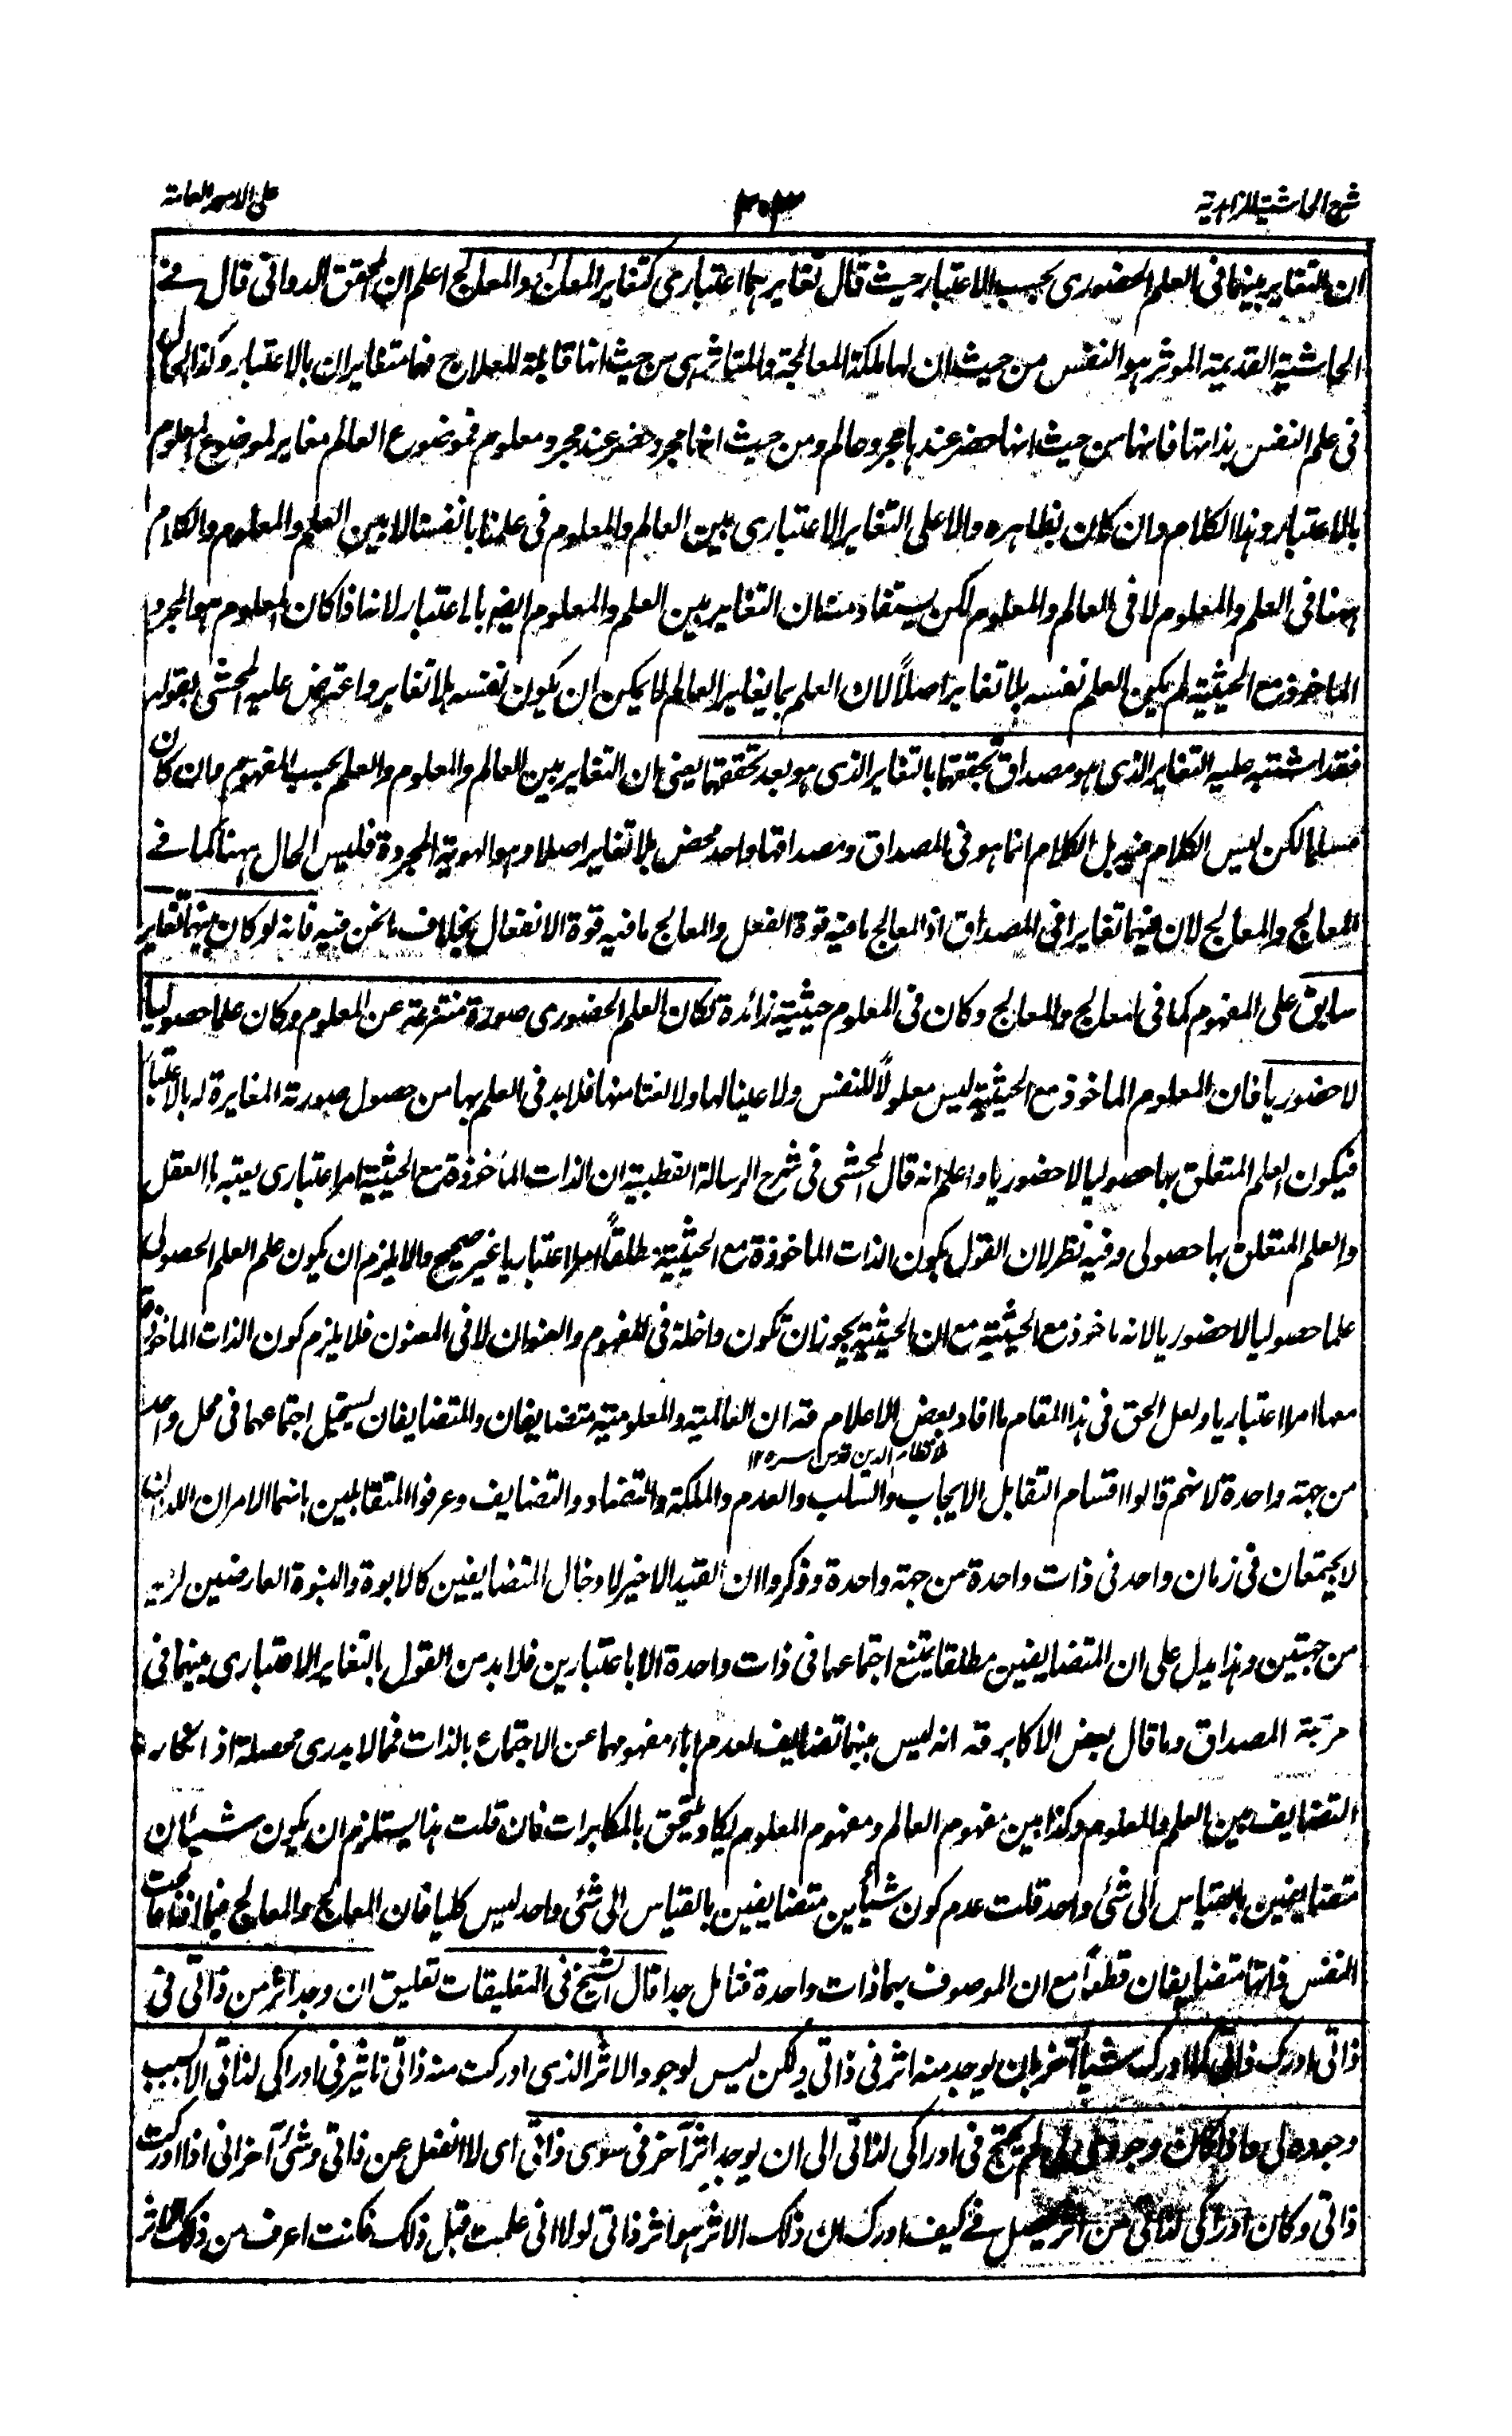 شرح الحاشية الزاهدية
٣٠٣
على الامور العامة
ان التغاير بينهما فى العلم الحضورى بحسب الاعتبار حيث قال تغايرهما اعتبارى كتغاير المعالج والمعالج اعلم ان المحقق الدوانى قال فے
الحاشية القديمة الموثر هو النفس من حيث ان لها ملكة المعالجة والمتاثر هى من حيث انها قابلة للعلاج فهما متغايران بالاعتبار وكذا الحال
فى علم النفس بذاتها فانها من حيث انها حضر عندها مجرد عالم ومن حيث انها مجرد حضر عند مجرد معلوم فموضوع العالم مغاير لموضوع المعلوم
بالاعتبار وهذا الكلام وان كان بظاهره دالا على التغاير الاعتبارى بين العالم والمعلوم فى علمنا بانفسنا لا بين العلم والمعلوم والكلام
ههنا فى العلم والمعلوم لا فى العالم والمعلوم لكن يستفاد منه ان التغاير بين العلم والمعلوم ايضا بالاعتبار لانه اذا كان المعلوم هو المجرد
الماخوذ مع الحيثية لم يكن العلم نفسه بلا تغاير اصلاً لان العلم بما يغاير العالم لا يمكن ان يكون نفسه بلا تغاير واعترض عليه المحشى بقوله
فقد اشتبه عليه التغاير الذى هو مصداق تحققهما بالتغاير الذى هو بعد تحققهما يعنى ان التغاير بين العالم والمعلوم والعلم بحسب المفهوم وان كان
مسلما لكن ليس الكلام فيه بل الكلام انما هو فى المصداق ومصداقها واحد محض بلا تغاير اصلا وهو الهوية المجردة فليس الحال ههنا كما فے
المعالج والمعالج لان فيهما تغايرا فى المصداق اذ المعالج ما فيه قوة الفعل والمعالج ما فيه قوة الانفعال بخلاف ما نحن فيه فانه لو كان بينهما تغاير
سابق على المفهوم كما فى المعالج والمعالج وكان فى المعلوم حيثية زائدة لكان العلم الحضورى صورة منتزعة عن المعلوم وكان علما حصوليا
لا حضوريا فان المعلوم الماخوذ مع الحيثية ليس معلولاً للنفس ولا عينا لها ولا نعتا منها فلا بد فى العلم بها من حصول صورته المغايرة له بالاعتبار
فيكون العلم المتعلق بها حصوليا لا حضوريا واعلم انه قال المحشى فى شرح الرسالة القطبية ان الذات الماخوذة مع الحيثية امر اعتبارى يعتبرها العقل
والعلم المتعلق بها حصولى وفيه نظر لان القول بكون الذات الماخوذة مع الحيثية مطلقاً امرا اعتباريا غير صحيح والا يلزم ان يكون علم العلم الحصولى
علما حصوليا لا حضوريا لانه ماخوذ مع الحيثية مع ان الحيثية يجوز ان تكون داخلة فى المفهوم والعنوان لا فى المعنون فلا يلزم كون الذات الماخوذة
معها امرا اعتباريا ولعل الحق فى هذا المقام ما افاد بعض الاعلام قه ان العالمية والمعلومية متضايفان والمتضايفان يستحيل اجتماعهما فى محل واحد
ملا نظام الدين قدس سره ١٢
من جهة واحدة لانهم قالوا اقسام التقابل الايجاب والسلب والعدم والملكة والتضاد والتضايف وعرفوا المتقابلين بانهما الامران اللذان
لا يجتمعان فى زمان واحد فى ذات واحدة من جهة واحدة وذكروا ان القيد الاخير لادخال المتضايفين كالابوة والبنوة العارضين لزيد
من جهتين وهذا يدل على ان المتضايفين مطلقا يمتنع اجتماعهما فى ذات واحدة الا باعتبارين فلا بد من القول بالتغاير الاعتبارى بينهما فى
مرتبة المصداق وما قال بعض الاكابر قه انه ليس بينهما تضايف لعدم اباء مفهومهما عن الاجتماع بالذات فمما لا يدرى محصله اذ انكار
التضايف بين العلم والمعلوم وكذا بين مفهوم العالم ومفهوم المعلوم يكاد يلتحق بالمكابرات فان قلت هذا يستلزم ان يكون شيئان
متضايفين بالقياس الى شئ واحد قلت عدم كون شيأين متضايفين بالقياس الى شئ واحد ليس كليا فان المعالج والمعالج فيما اذا عالجت
النفس ذاتها متضايفان قطعاً مع ان الموصوف بهما ذات واحدة فتامل جدا قال الشيخ فى التعليقات تعليق ان وجد اثر من ذاتى فى
ذاتى ادرك ذاتى كما ادرك شيأ آخر بان يوجد منه اثر فى ذاتى ولكن ليس لوجود الاثر الذى ادركت منه ذاتى تاثير فى ادراكى لذاتى الا بسبب
وجوده لى واذا كان وجودى لى لم يحتج فى ادراكى لذاتى الى ان يوجد اثر آخر فى سوى ذاتى اى لا انفعل عن ذاتى وشئ آخر انى اذا ادركت
ذاتى وكان ادراكى لذاتى من اثر يحصل فے كيف ادرك ان ذلك الاثر هو اثر ذاتى لولا انى علمت قبل ذلك فكنت اعرف من ذلك الاثر